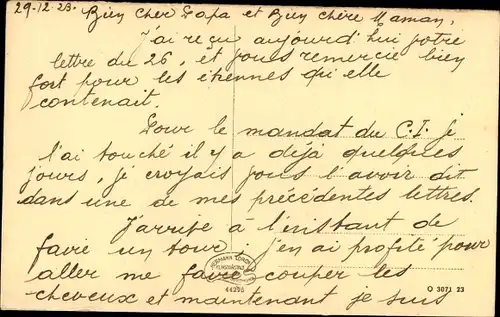 29-12-23. Bien Cher Papa et Bien chère Maman,
J'ai reçu aujourd'hui votre
lettre du 26, et vous remercie bien
fort pour les étrennes qu'elle
contenait.
Pour le mandat du C.I. je
l'ai touché il y a déjà quelques
jours, je croyais vous l'avoir dit
dans une de mes précédentes lettres.
J'arrive à l'instant de
faire un tour, j'en ai profité pour
aller me faire couper les
cheveux et maintenant je suis
44295
O 3071 23